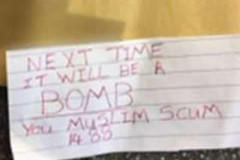 NEXT TIME
IT WILL BE A
BOMB
YOU MUSLIM SCUM